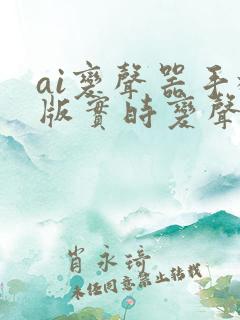 ai變聲器手
版實時變聲
肖永琦
未经同意禁止转载